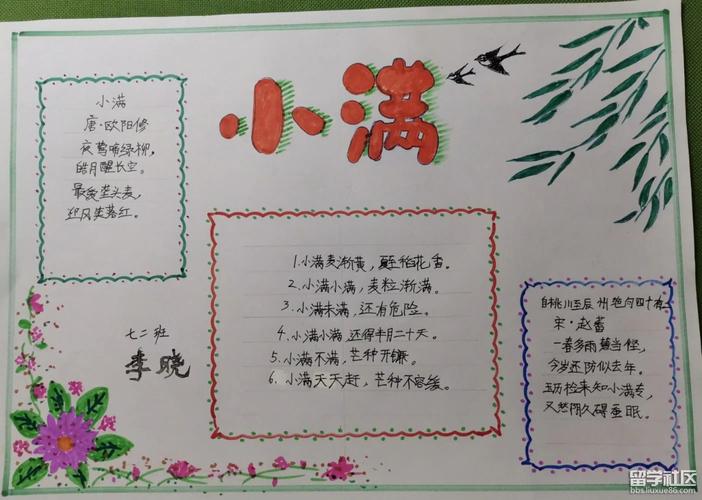 小满
小满
唐·欧阳修
夜莺啼绿柳,
皓月醒长空。
最爱垄头麦,
迎风笑落红。
七二班
李晓
1.小满麦渐黄,夏至稻花香。
2.小满小满,麦粒渐满。
3.小满未满,还有危险。
4.小满小满,还得半月二十天。
5.小满不满,芒种开镰。
6.小满天天赶,芒种不容缓。
自桃川至辰州绝句四十有
宋·赵蕃
一春多雨慧当悭,
今岁还防似去年。
玉历检来知小满
又愁阴久碍蚕眠。
留学社区
bbs.liuxue86.com